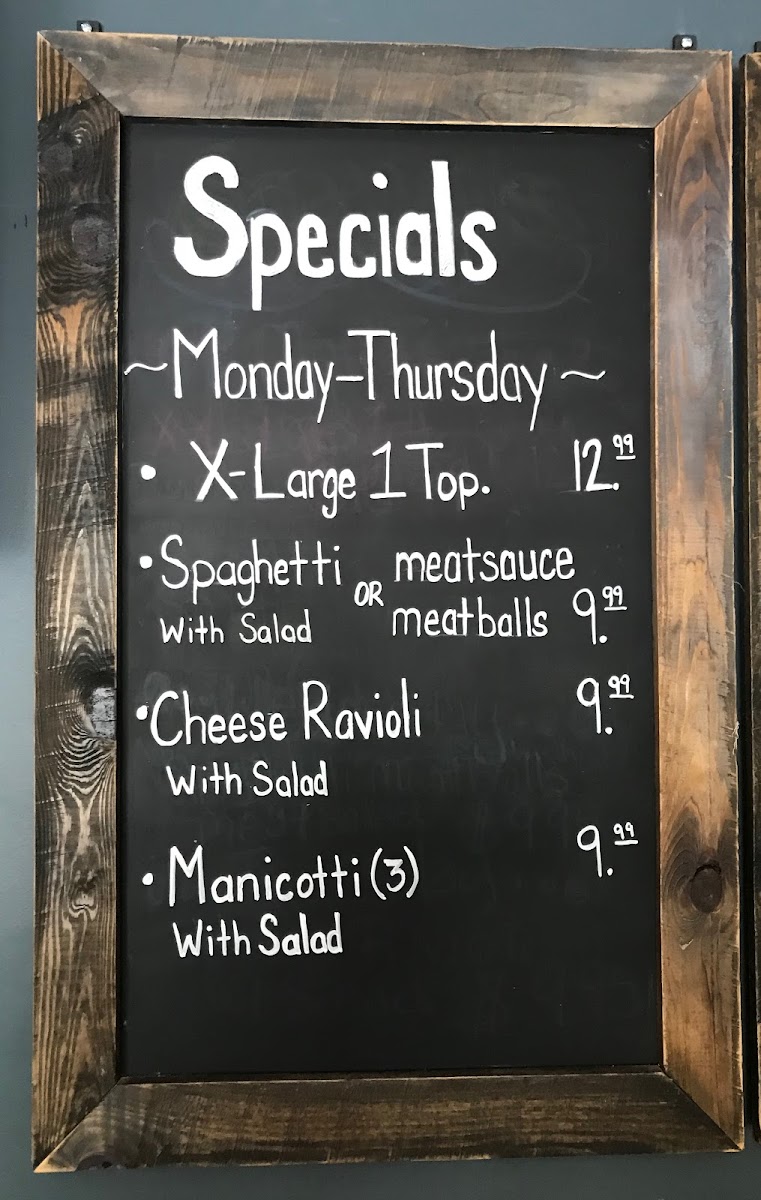 Specials
~Monday-Thursday~
• X-Large 1 Top. 12.99
• Spaghetti OR meatsauce
With Salad meatballs 9.99
• Cheese Ravioli 9.99
With Salad
• Manicotti (3) 9.99
With Salad